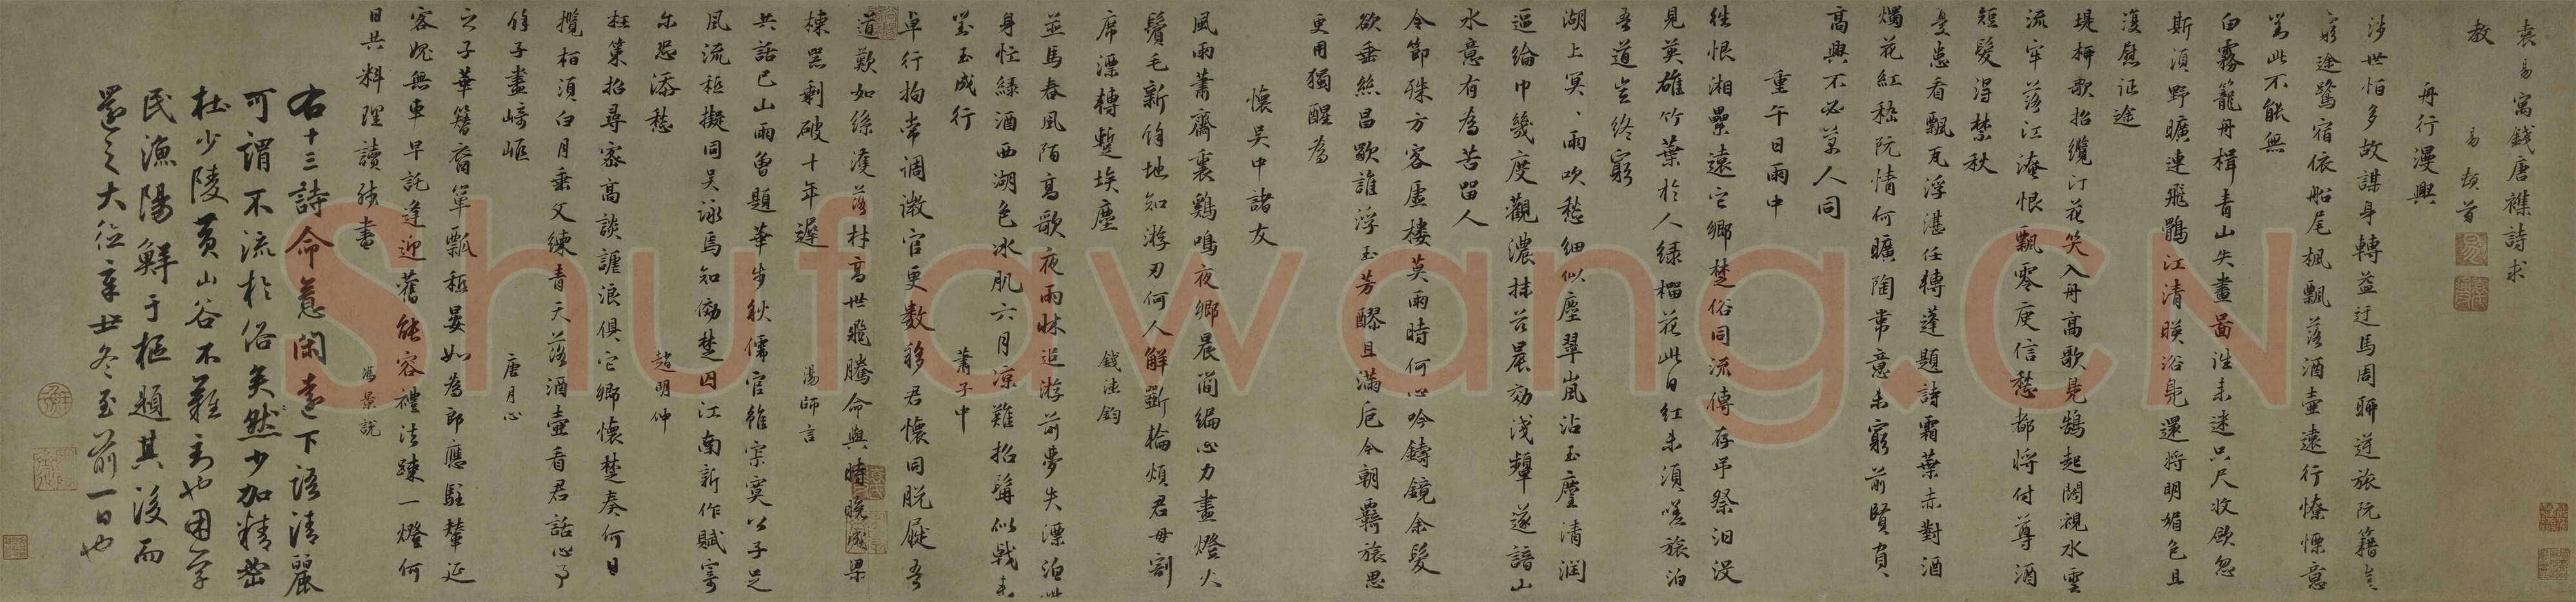 袁易寓錢唐襍詩求
教
易頓首
舟行漫興
涉世怕多故謀身轉益迂馬周聊逆旅阮籍豈
窮途鷺宿依船尾楓飄落酒壺遠行憭慄意
對此不能無
白霧籠舟楫青山失畫圖誰未迷只尺收欲忽
斯須野曠連飛鶻江清暎浴鳧還將明媚色且
復慰征途
堤柳歌招纜汀花笑入舟高歌鳧鵠起闊視水雲
流牢落江淹恨飄零庾信愁都將付尊酒
短髮得禁秋
憂患看飄瓦浮湛任轉蓬題詩霜葉赤對酒
燭花紅嵇阮情何曠陶韋意未窮前賢有
高興不必萬人同
重午日雨中
徃恨湘纍遠它鄉楚俗同流傳存弔祭汨沒
見英雄竹葉於人綠榴花此日紅未須嗟旅泊
吾道豈終窮
湖上冥冥雨吹愁細似塵翠嵐沾玉麈清潤
逼綸巾幾度觀濃抹茲晨効淺顰遂諳山
水意有為苦留人
令節殊方客虛樓莫雨時何心吟鑄鏡余髮
欲垂絲昌歜誰浮玉芳醪且滿卮今朝羇旅思
更用獨醒為
懷吳中諸友
風雨蕭齋裏鷄鳴夜鄉晨簡編心力盡燈火
鬢毛新餘地知游刃何人解斲輪煩君毋割
席漂轉蹔埃塵
錢德鈞
並馬春風陌高歌夜雨牀追游前夢失漂泊此
身忙綠酒西湖色冰肌六月涼難招髯似戟未
對玉成行
蕭子中
卓行拘常調微官更數移君懷同脫屣吾
道歎如絲濩落材高世飛騰命與時晚歲梁
棟器剩破十年遲
湯師言
共話巴山雨曾題華步秋儒官維寂寞公子足
風流秪擬同吳詠焉知効楚囚江南新作賦寄
尔恐添愁
趙明仲
枉策招尋密高談謔浪俱它鄉懷楚奏何日
攬栢須白月垂文練青天落酒壺看君話心事
餘子盡崎嶇
唐月心
之子華簪裔簞瓢秪晏如為郎應駐輦延
客媿無車早託逢迎舊能容禮法踈一燈何
日共料理讀殘書
馮景說
右十三詩命意閑遠下語清麗
可謂不流於俗矣然少加精密
杜少陵黃山谷不難到也困學
民漁陽鮮于樞題其後而
還之大德辛丑冬至前一日也
Shufawang.CN